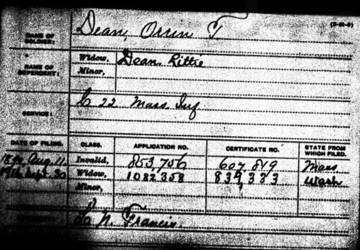 NAME OF SOLDIER: Dean, Orrin T
NAME OF DEPENDENT: Widow, Dean, Kittie
Minor,
SERVICE: C 22 Mass Inf
DATE OF FILING. CLASS. APPLICATION NO. CERTIFICATE NO. STATE FROM WHICH FILED.
Aug. 11 Invalid, 853,756 607,819 Mass
Sept. 30 Widow, 1082358 839,333 Wash
Minor,
N. Francis